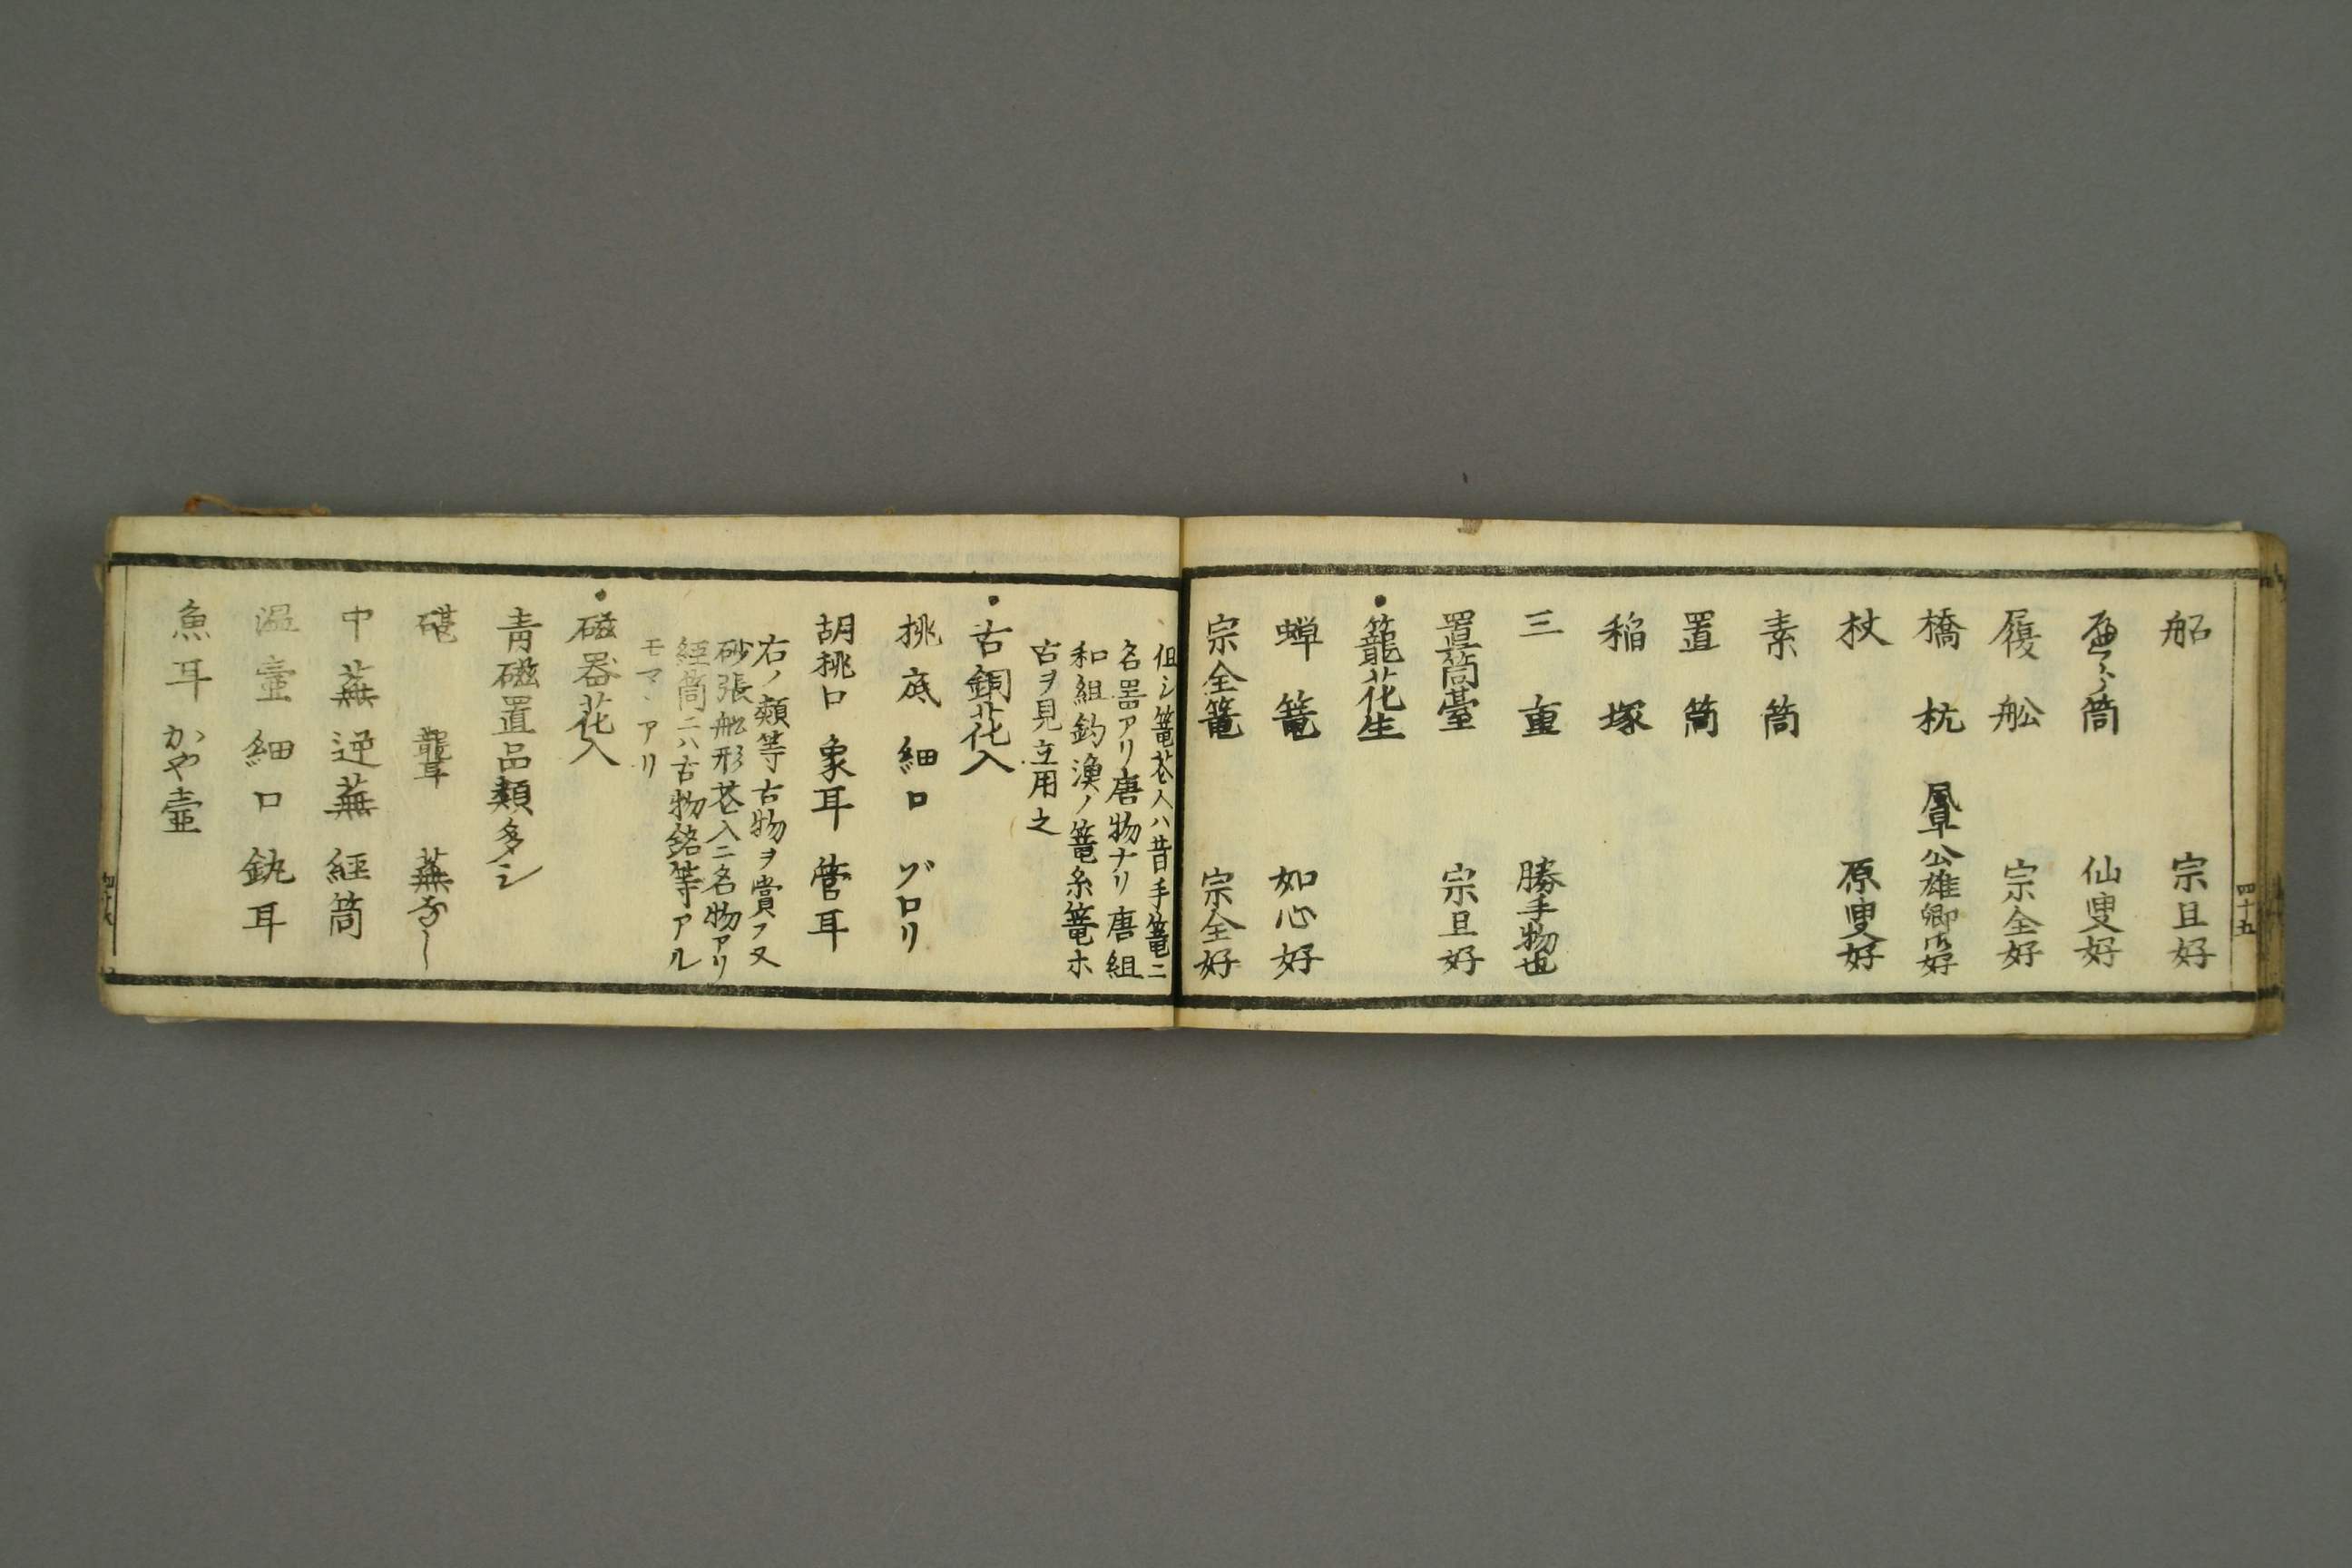 四十五
船 宗旦好
筒 仙叟好
履舩 宗全好
橋杭 鳳皐公雄卿御好
杖 原叟好
素筒
置筒
稲塚
三重 勝手物也
置筒臺 宗旦好
籠花生
蝉篭 如心好
宗全篭 宗全好
但シ篭花入ハ昔手篭ニ
名噐アリ唐物ナリ唐組
和組釣漁ノ篭糸篭ホ
古ヲ見立用之
古銅花入
桃底 細口 ゾロリ
胡桃口 象耳 管耳
右ノ類等古物ヲ賞フ又
砂張舩形花入ニ名物アリ
経筒ニハ古物銘等アル
モマヽアリ
磁器花入
青磁置品類多シ
碪 龍耳 蕪なし
中蕪 逆蕪 経筒
温壷 細口 鈂耳
魚耳 かや壷